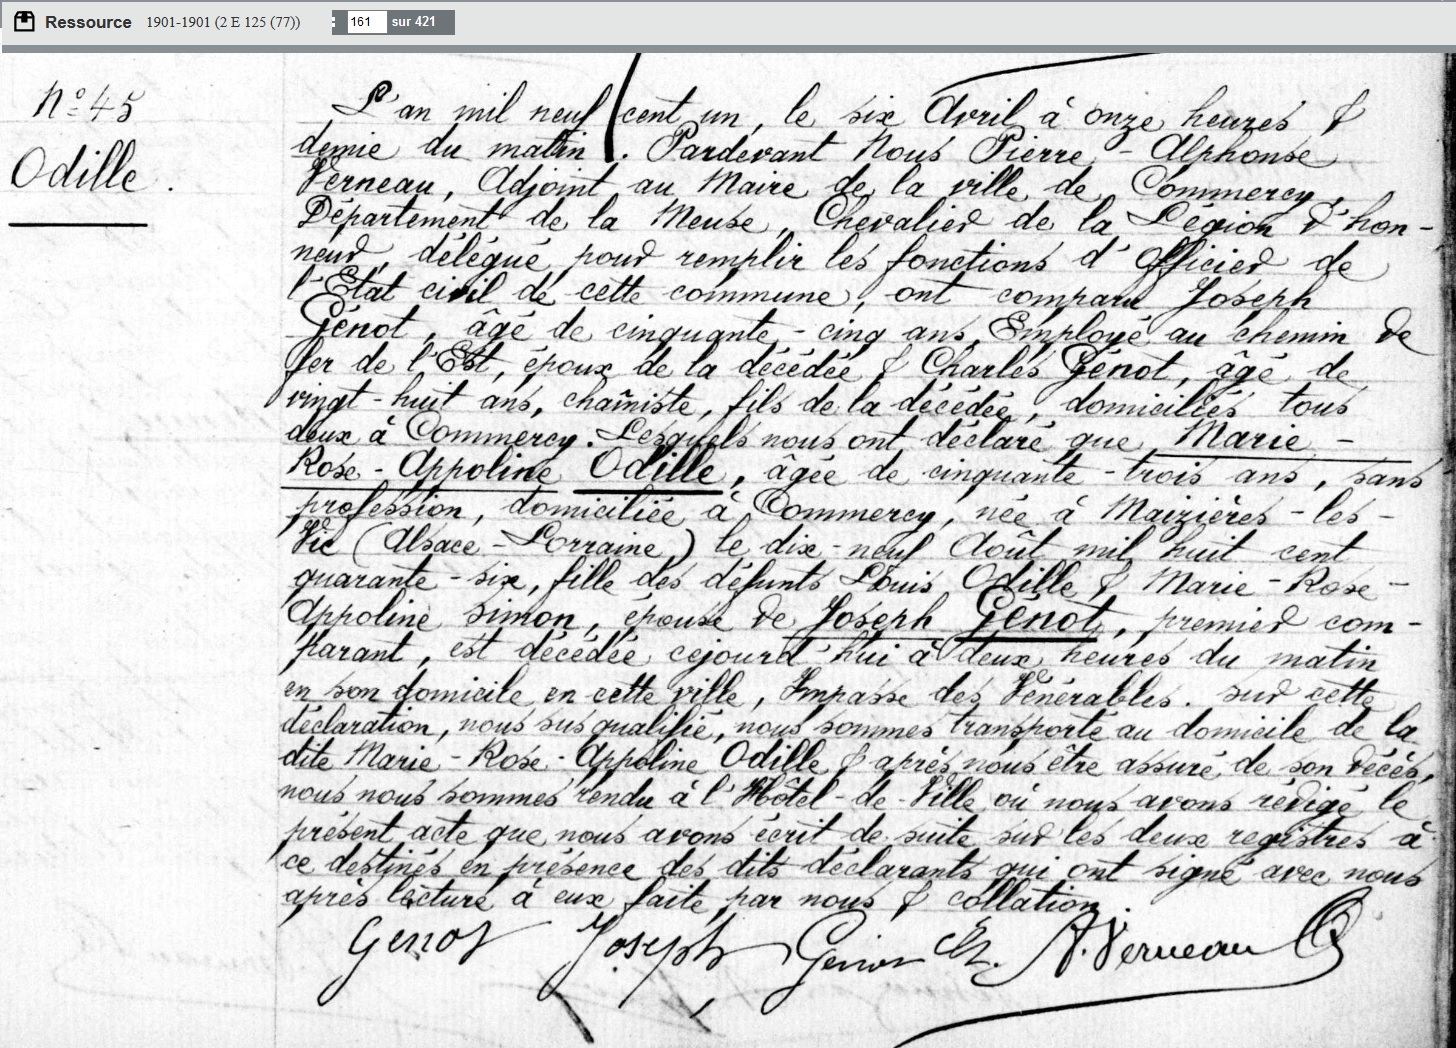 Ressource 1901-1901 (2 E 125 (77)) 161 sur 421
Nº 45
Odille.
L'an mil neuf cent un, le six Avril à onze heures &
demie du matin. Pardevant Nous Pierre - Alphonse
Verneau, Adjoint au Maire de la ville de Commercy,
Département de la Meuse, Chevalier de la Légion d'hon-
neur, délégué pour remplir les fonctions d'Officier de
l'Etat civil de cette commune, ont comparu Joseph
Génot, âgé de cinquante-cinq ans, Employé au chemin de
fer de l'Est, époux de la décédée & Charles Génot, âgé de
vingt-huit ans, chaîniste, fils de la décédée, domiciliés tous
deux à Commercy. Lesquels nous ont déclaré que Marie -
Rose - Appoline Odille, âgée de cinquante-trois ans, sans
profession, domiciliée à Commercy, née à Maizières-les-
Vic (Alsace-Lorraine) le dix-neuf Août mil huit cent
quarante-six, fille des défunts Louis Odille & Marie-Rose-
Appoline Simon, épouse de Joseph Genot, premier com-
parant, est décédée cejourd'hui à deux heures du matin
en son domicile en cette ville, Impasse des Vénérables. Sur cette
déclaration, nous susqualifié, nous sommes transporté au domicile de la
dite Marie-Rose-Appoline Odille & après nous être assuré de son décès,
nous nous sommes rendu à l'Hôtel-de-Ville où nous avons rédigé le
présent acte que nous avons écrit de suite sur les deux registres à
ce destinés en présence des dits déclarants qui ont signé avec nous
après lecture à eux faite par nous & collation.
Genot Joseph Genot Ch. A. Verneau